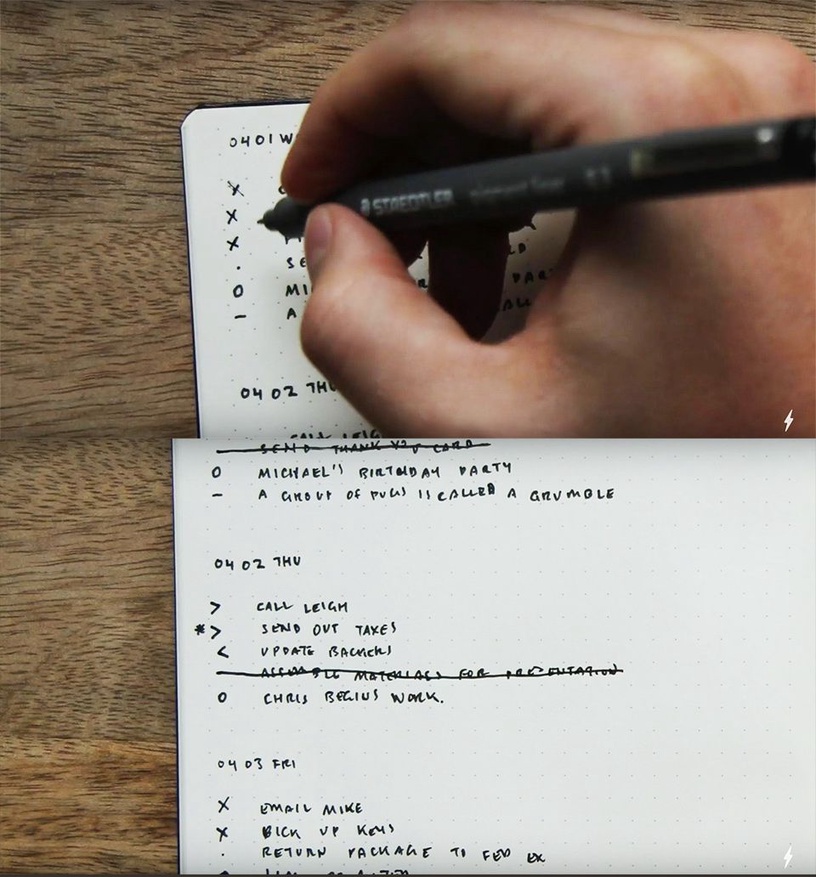 0401 W
X
X
X
· SE
O MI
– A
STAEDTLER
04 02 THU
CALL LEIG
SEND THANK YOU CARD
O MICHAEL'S BIRTHDAY PARTY
– A GROUP OF PUGS IS CALLED A GRUMBLE
04 02 THU
> CALL LEIGH
* > SEND OUT TAXES
< UPDATE BACKERS
ASSEMBLE MATERIALS FOR PRESENTATION
O CHRIS BEGINS WORK.
04 03 FRI
X EMAIL MIKE
X PICK UP KEYS
· RETURN PACKAGE TO FED EX